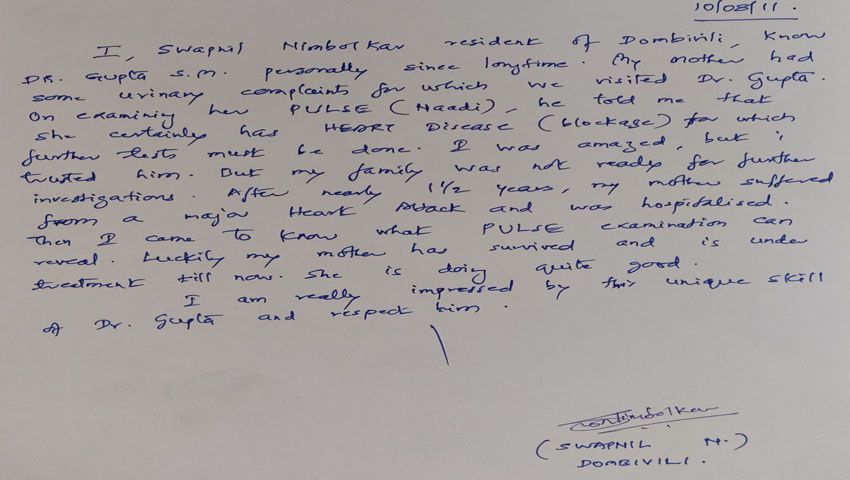 10/03/11.
I, Swapnil Nimbolkar resident of Dombivili, know
DR. Gupta S.M. personally since longtime. My mother had
some urinary complaints for which we visited Dr. Gupta.
On examining her PULSE (Naadi), he told me that
she certainly has HEART Disease (blockage) for which
further tests must be done. I was amazed, but i
trusted him. But my family was not ready for further
investigations. After nearly 1 1/2 years, my mother suffered
from a major Heart Attack and was hospitalised.
Then I came to know what PULSE examination can
reveal. Luckily my mother has survived and is under
treatment till now. She is doing quite good.
I am really impressed by this unique skill
of Dr. Gupta and respect him.
(SWAPNIL N.)
DOMBIVILI.